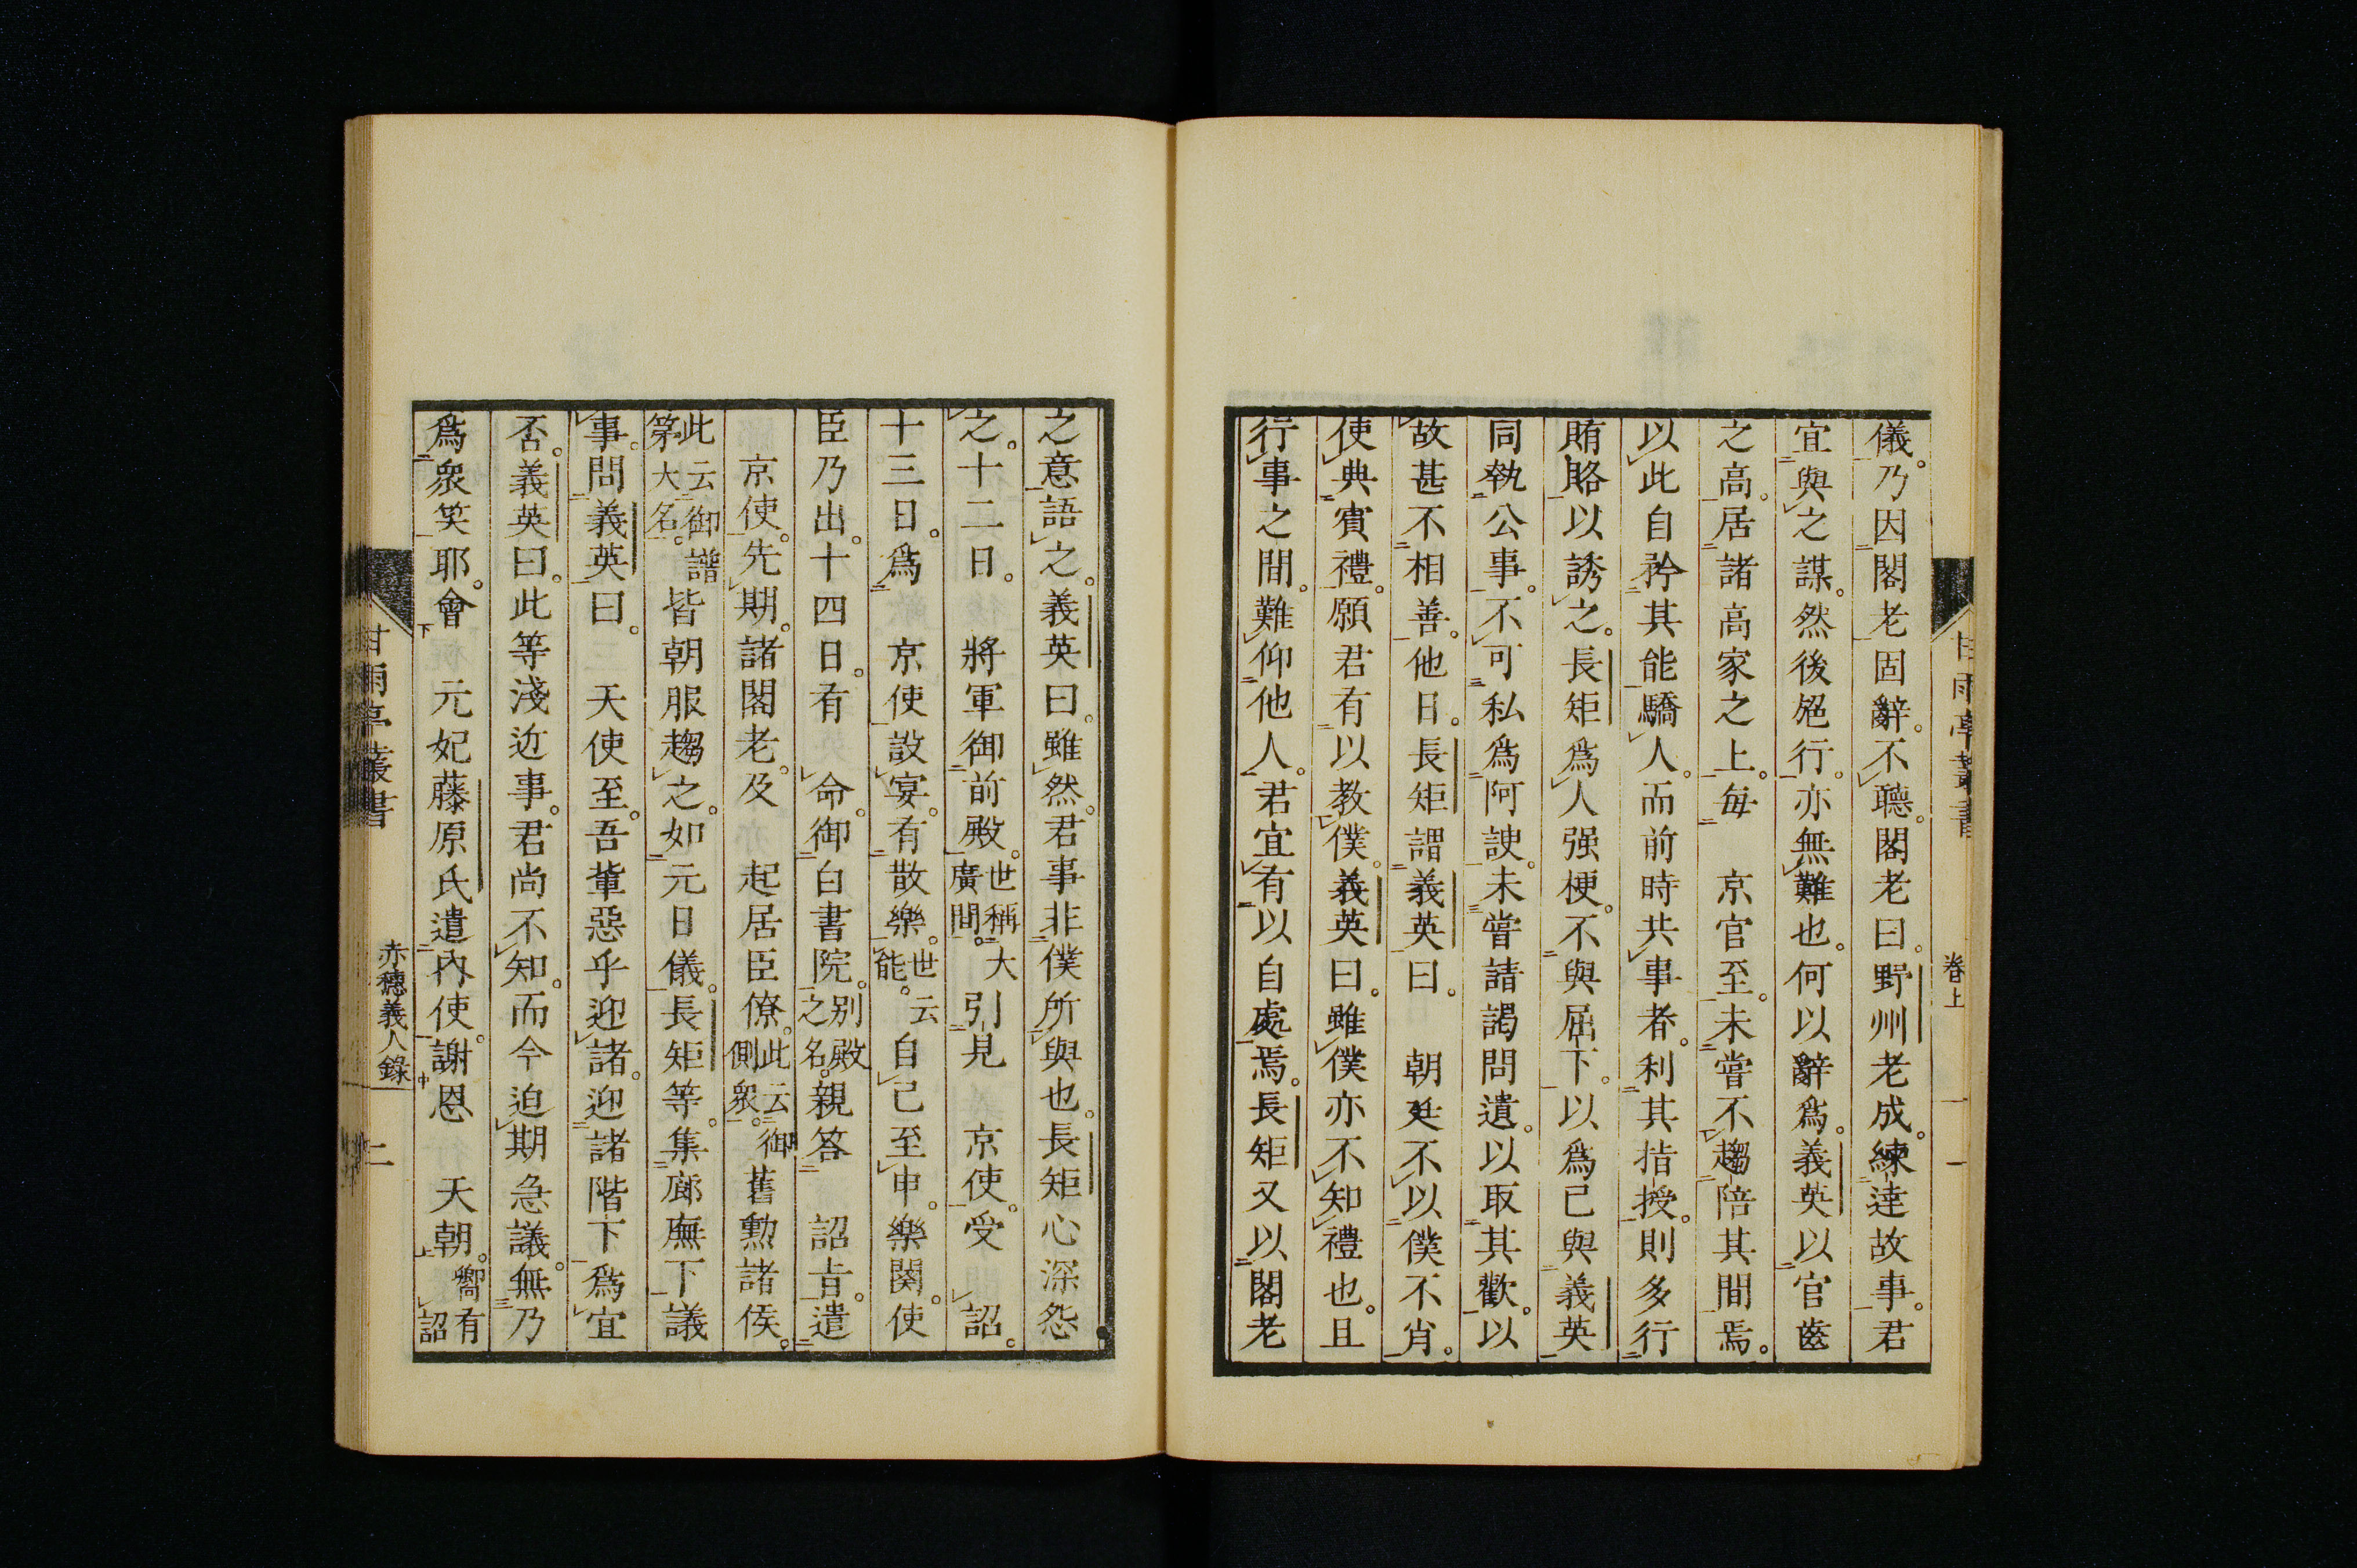 儀。乃因閣老固辭。不聽。閣老曰。野州老成。練達故事。君
宜與之謀。然後處行。亦無難也。何以辭爲。義英以官齒
之高。居諸高家之上。每　京官至。未嘗不趨陪其間焉。
以此自矜其能驕人。而前時共事者。利其指授。則多行
賄賂以誘之。長矩爲人强梗。不與屈下。以爲己與義英
同執公事。不可私爲阿諛。未嘗請謁問遺。以取其歡。以
故甚不相善。他日。長矩謂義英曰。　朝廷不以僕不肖。
使典賓禮。願君有以教僕。義英曰。雖僕亦不知禮也。且
行事之間。難仰他人。君宜有以自處焉。長矩又以閣老
甘雨亭叢書　卷上　一
之意語之。義英曰。雖然。君事非僕所與也。長矩心深怨
之。十二日。　將軍御前殿。世稱大廣間。引見　京使。受　詔。
十三日。爲　京使設宴。有散樂。世云能。自己至申。樂闋。使
臣乃出。十四日。有　命。御白書院。別殿之名。親答　詔旨。遣
京使。先期。諸閣老。及　起居臣僚。此云御側衆。舊勳諸侯。
此云御譜第大名。皆朝服趨之。如元日儀。長矩等。集廊廡下議
事。問義英曰。　天使至。吾輩惡乎迎諸。迎諸階下爲宜
否。義英曰。此等淺近事。君尚不知。而今迫期急議。無乃
爲衆笑耶。會　元妃藤原氏遣內使。謝恩　天朝。嚮有詔
甘雨亭叢書　赤穗義人錄　二